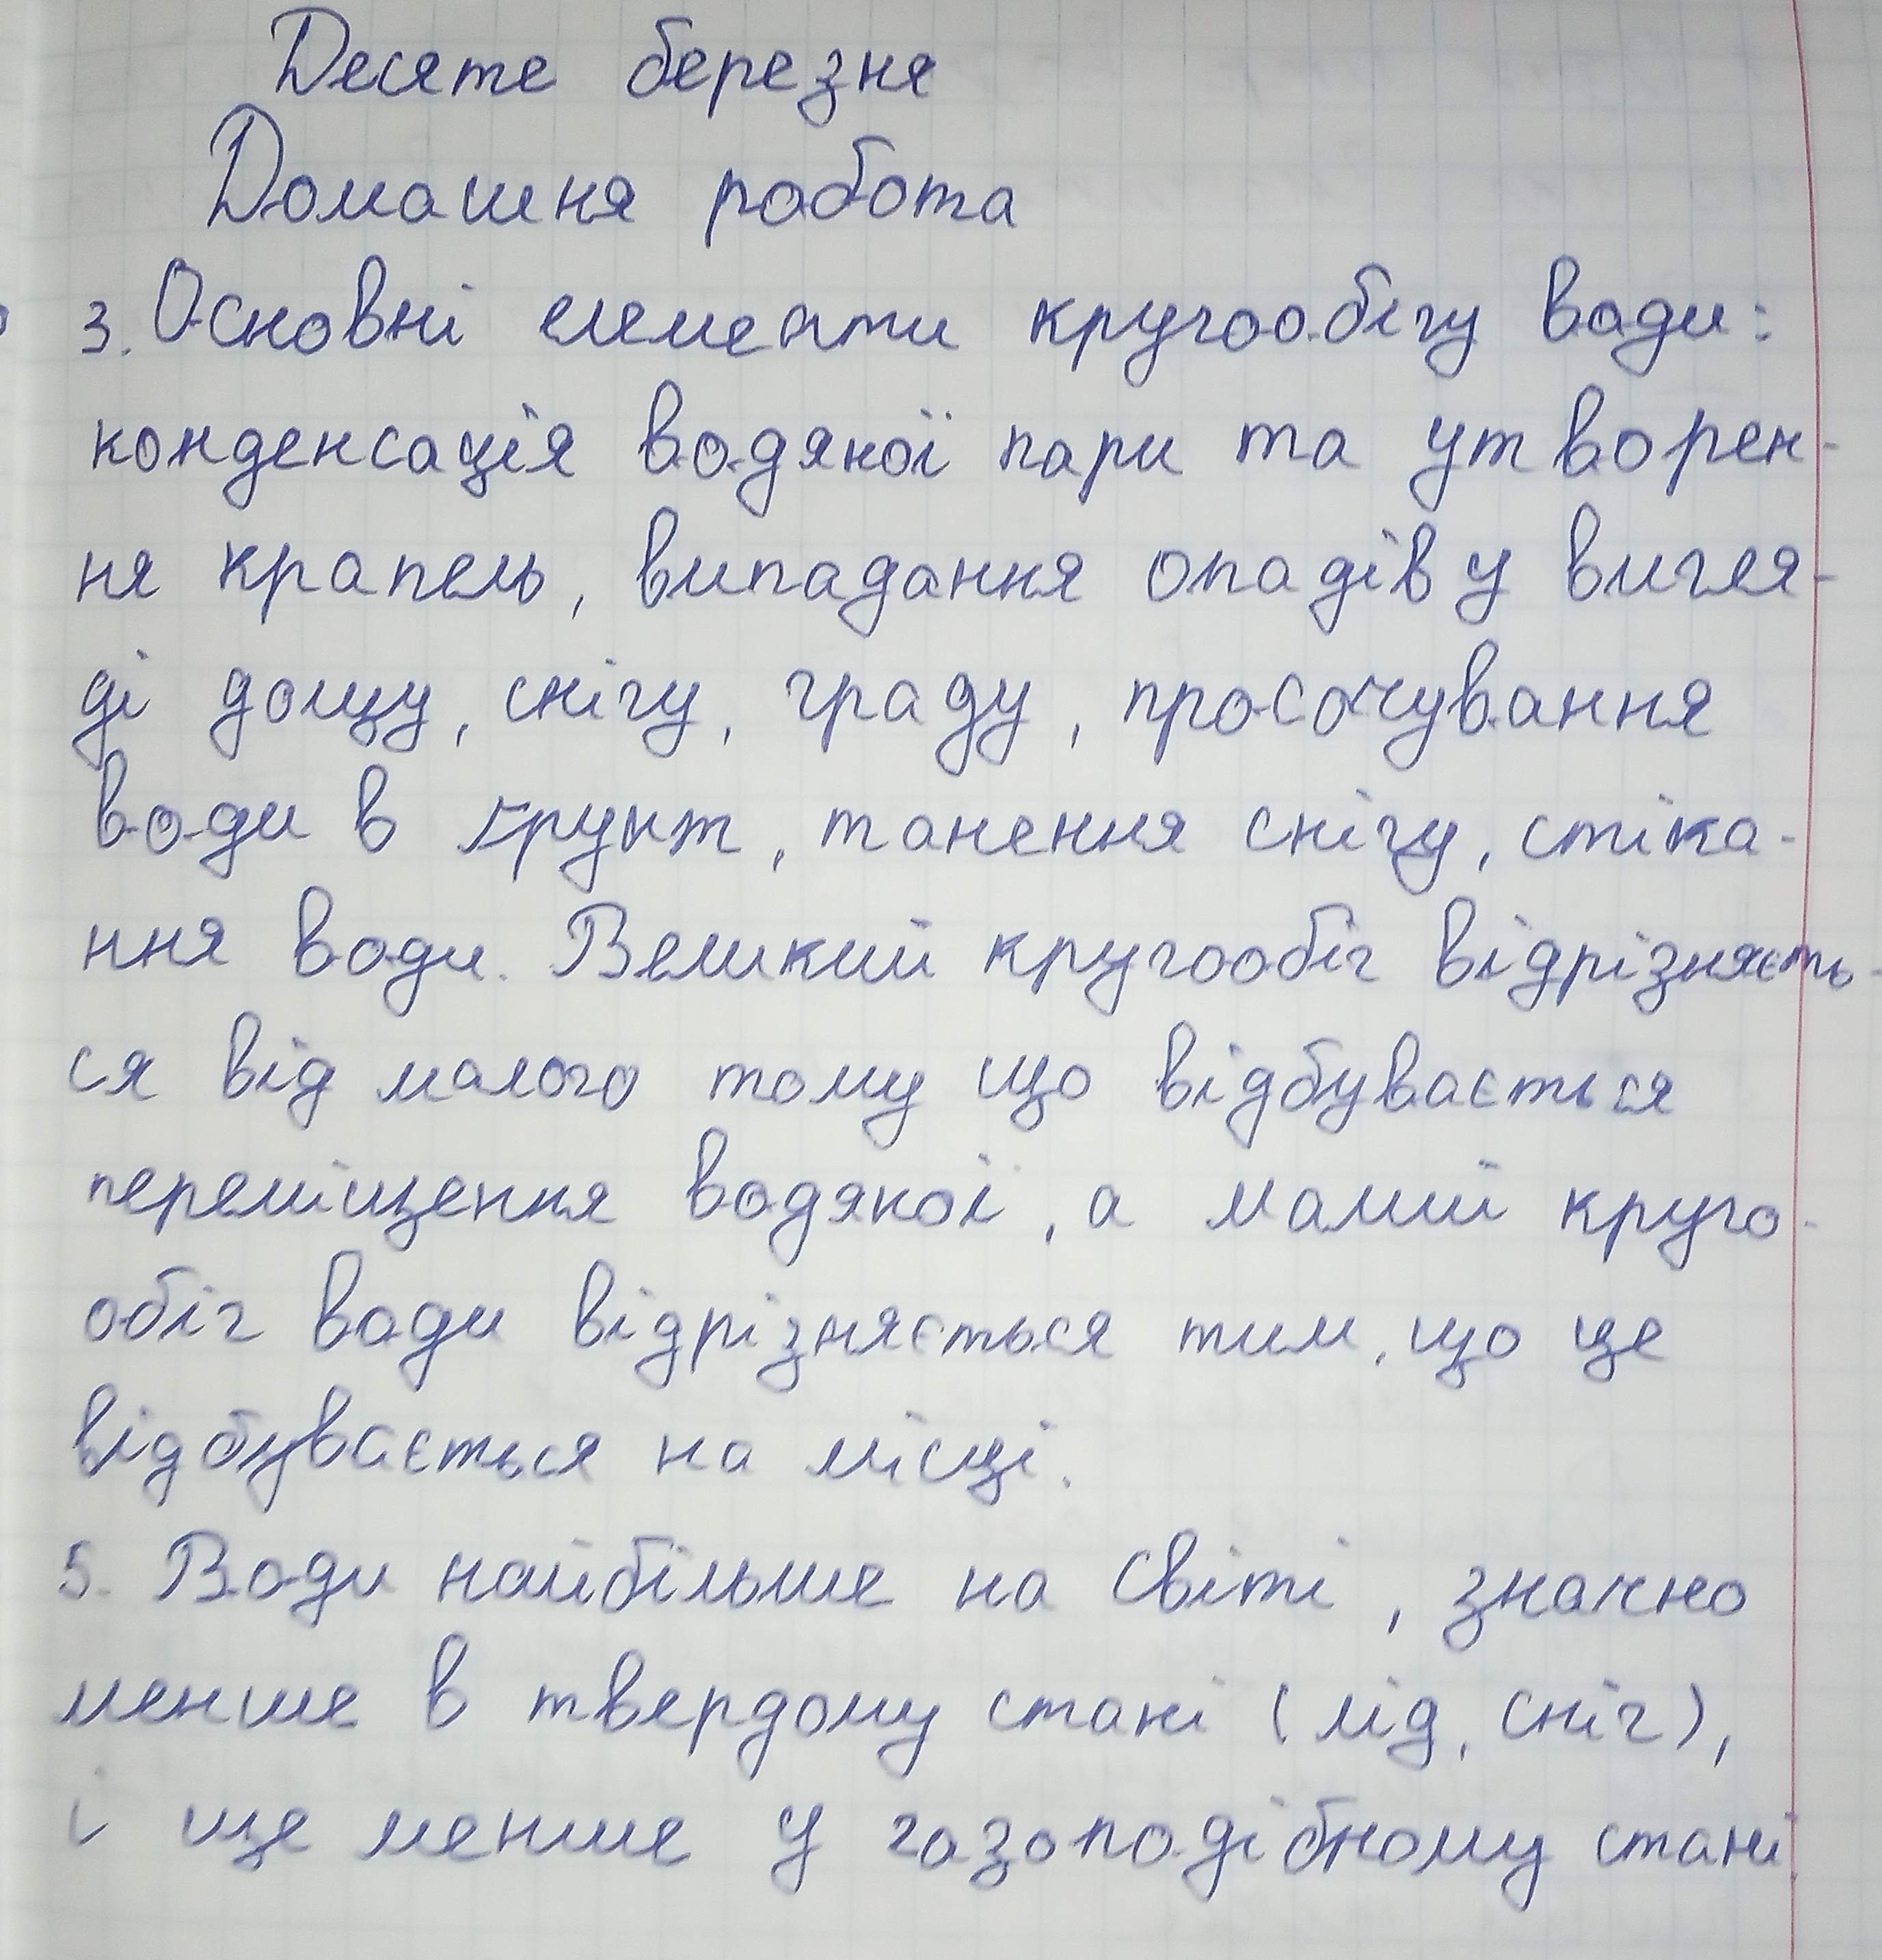 Десяте березня
Домашня робота
3. Основні елементи кругообігу води:
конденсація водяної пари та утворен-
ня крапель, випадання опадів у вигля-
ді дощу, снігу, граду, просочування
води в ґрунт, танення снігу, стіка-
ння води. Великий кругообіг відрізняєть-
ся від малого тому що відбувається
переміщення водяної, а малий круго-
обіг води відрізняється тим, що це
відбувається на місці.
5. Води найбільше на світі, значно
менше в твердому стані (лід, сніг),
і ще менше у газоподібному стані.